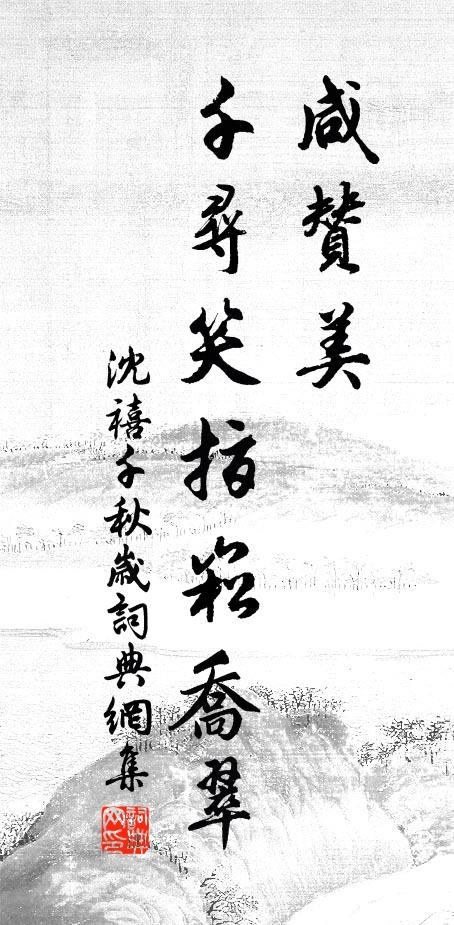 咸贊美
千尋笑指松喬翠
沈禧千秋歲詞典網集